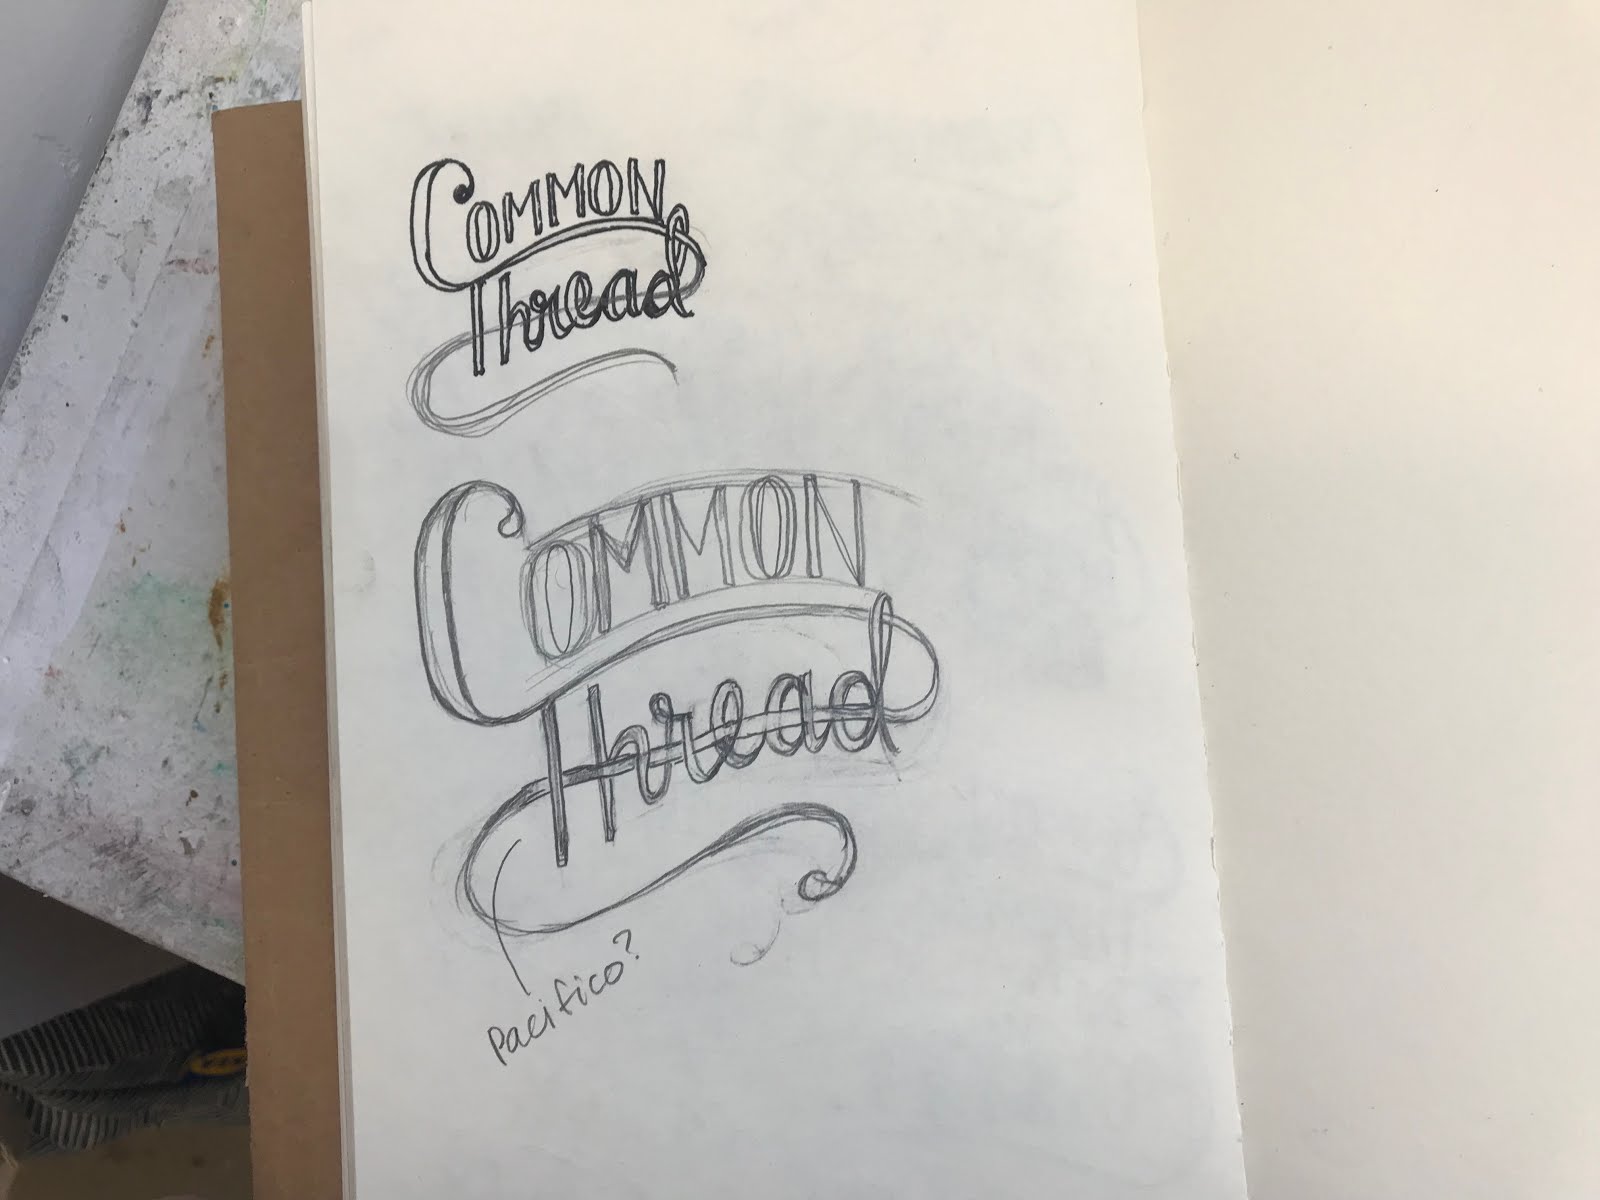 COMMON
Thread
COMMON
Thread
Pacifico?